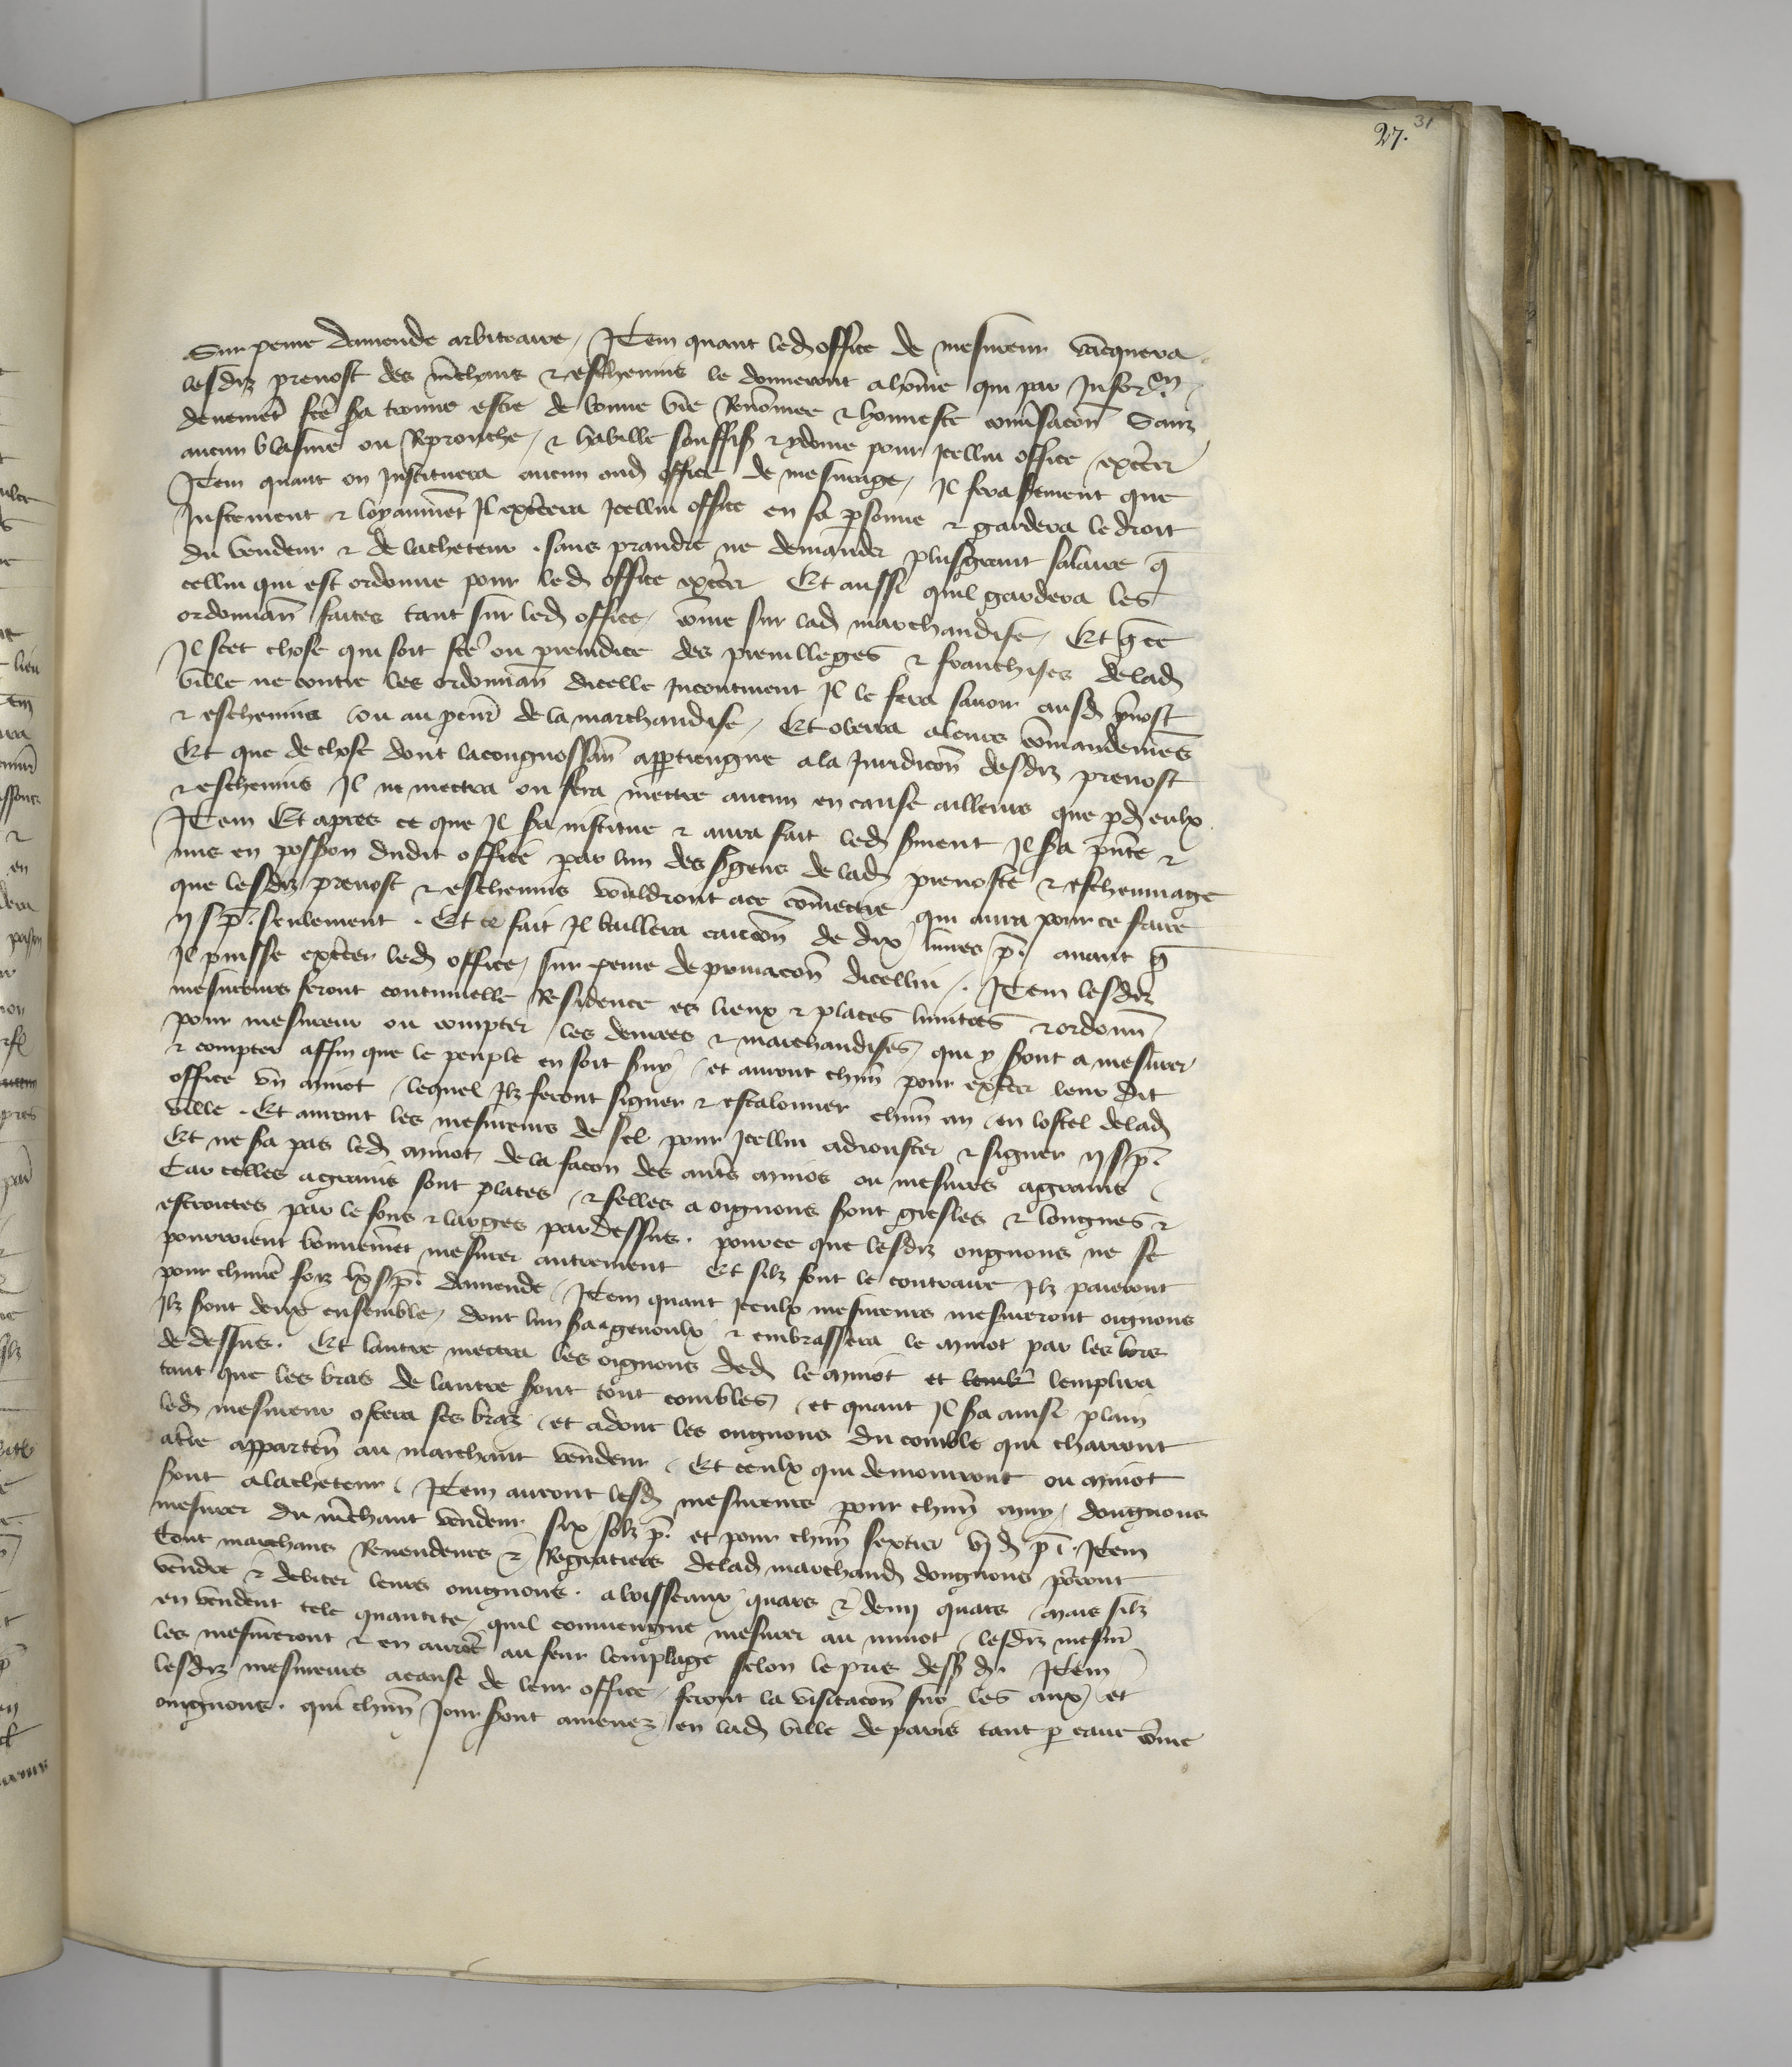 27. 31
Sur peine damende arbitraire / Item quant led office de mesureur vacquera
lesdiz prevost des mchans & eschevins le donneront a home qui par Infor.on
devemet fce sa trouve estre de bonne vie Renomee & honneste conusacon Sans
aucun blasme ou Reprouche / & habille souffis & ydoine pour Icellui office excer
Item quant on Instituera aucun oud office de mesurage / Il fera serment que
Justement & loyaumet Il excera Icellui office en sa psonne & gardera le droit
du vendeur & de lacheteur . sans prandre ne demander plusgrant salaire q
cellui qui est ordonne pour led office excer Et aussi quil gardera les
ordonnan faites tant sur led office / come sur lad marchandise / Et q ce
Il scet chose qui soit fce ou preiudice des previlleges & franchises delad
ville ne contre les ordonnan dicelle Incontinent Il le fera savoir ausd pvost
& eschevins ou au pcur de la marchandise / Et obeira aleurs comandemes
Et que de chose dont lacongnossan apptiengne ala Juridicon desdiz prevost
& eschevins Il ne mectra ou fera mectre aucun en cause ailleurs que pd eulx
Item Et apres ce que Il sa institue & aura fait led sment Il sa pnte &
mis en posson dudit office par lun des sgens de lad prevoste & eschevinage
que lesdiz prevost & eschevins vouldront ace comectre qui aura pour ce faire
ij s p. seulement . Et ce fait Il baillera caucon de dix livres p. avant q
Il puisse excer led office / sur peine de privacon dicellui /. Item lesdiz
mesureurs feront continuelle Residence es lieux & places limitees & ordonn
pour mesurer ou compter les denrees & marchandises qui y sont a mesurer
& compter affin que le peuple en soit svy / et auront chun pour excer leur dit
office un minot / lequel Ilz feront signer & estalonner chun an / en lostel delad
ville . Et auront les mesureurs de sel pour Icellui adiouster & signer ij s p.
Et ne sa pas led minot de la facon des aut's minos ou mesures agrains /
Car celles agrains sont plates / & selles a oignons sont gresles & longues &
estroictes par le fons & larges pardessus . pource que lesdiz ongnons ne se
pourroient bonnemet mesurer autrement Et silz font le contraire Ilz paieront
pour chune foiz lx s p. damende / Item quant Iceulx mesureurs mesureront oignons
Ilz sont deux ensemble / dont lun sa agenoulx & embrassera le minot par les bors
de dessus . Et lautre mectra les oignons ded le minot et lemplira
tant que les bras de lautre sont tout combles / et quant Il sa ainsi plain
led mesureur ostera ses braz / et adont les ongnons du comble qui charront
atre apparten au marchant vendeur / Et ceulx qui demourront ou minot
sont alacheteur / Item auront lesd mesureurs pour chun muy / dongnons
mesurer du mchant vendeur six solz p. et pour chun sextier vj d p. Item
Tout marchans Revendeurs & Regratiers delad marchand dongnons porront
vendre & debiter leurs ongnons . aboisseaux quars & demy quars / mais silz
en vendent tele quantite / quil conviengne mesurer au minot / lesdiz mesur
les mesureront & en auront au feur lemplage selon le pris dess d. Item
lesdiz mesureurs acause de leur office / feront la visitacon sur les aux / et
ongnons . qui chun Jour sont amenez / en lad ville de paris tant p eaue come